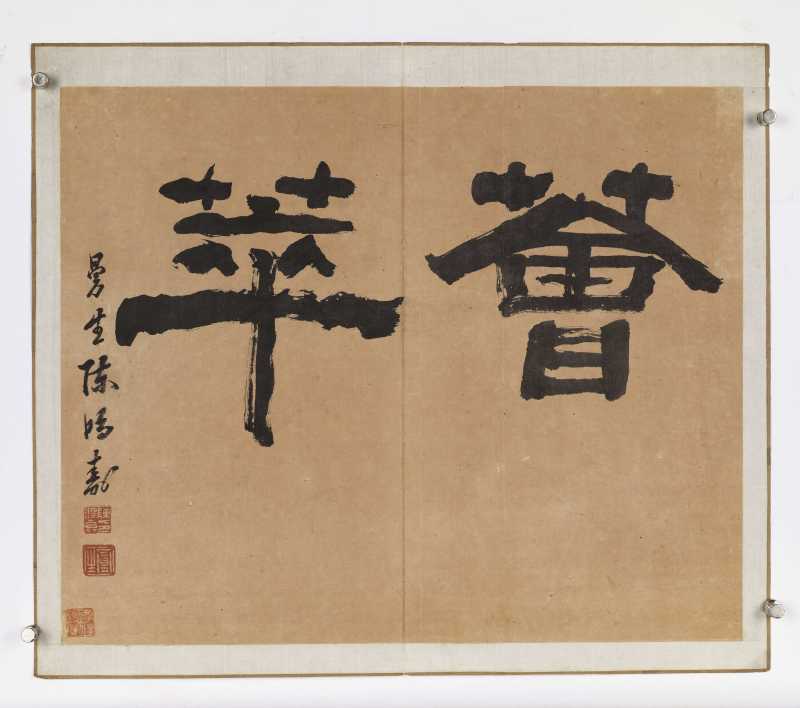 薈萃
曼生陳鴻壽